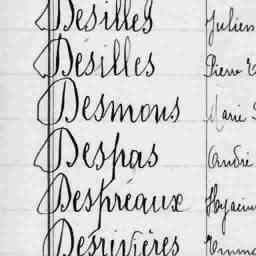 Desilles Julien
Désilles Pierre
Desmons Marie
Despas André
Despréaux Hyacin
Desrivières Emma